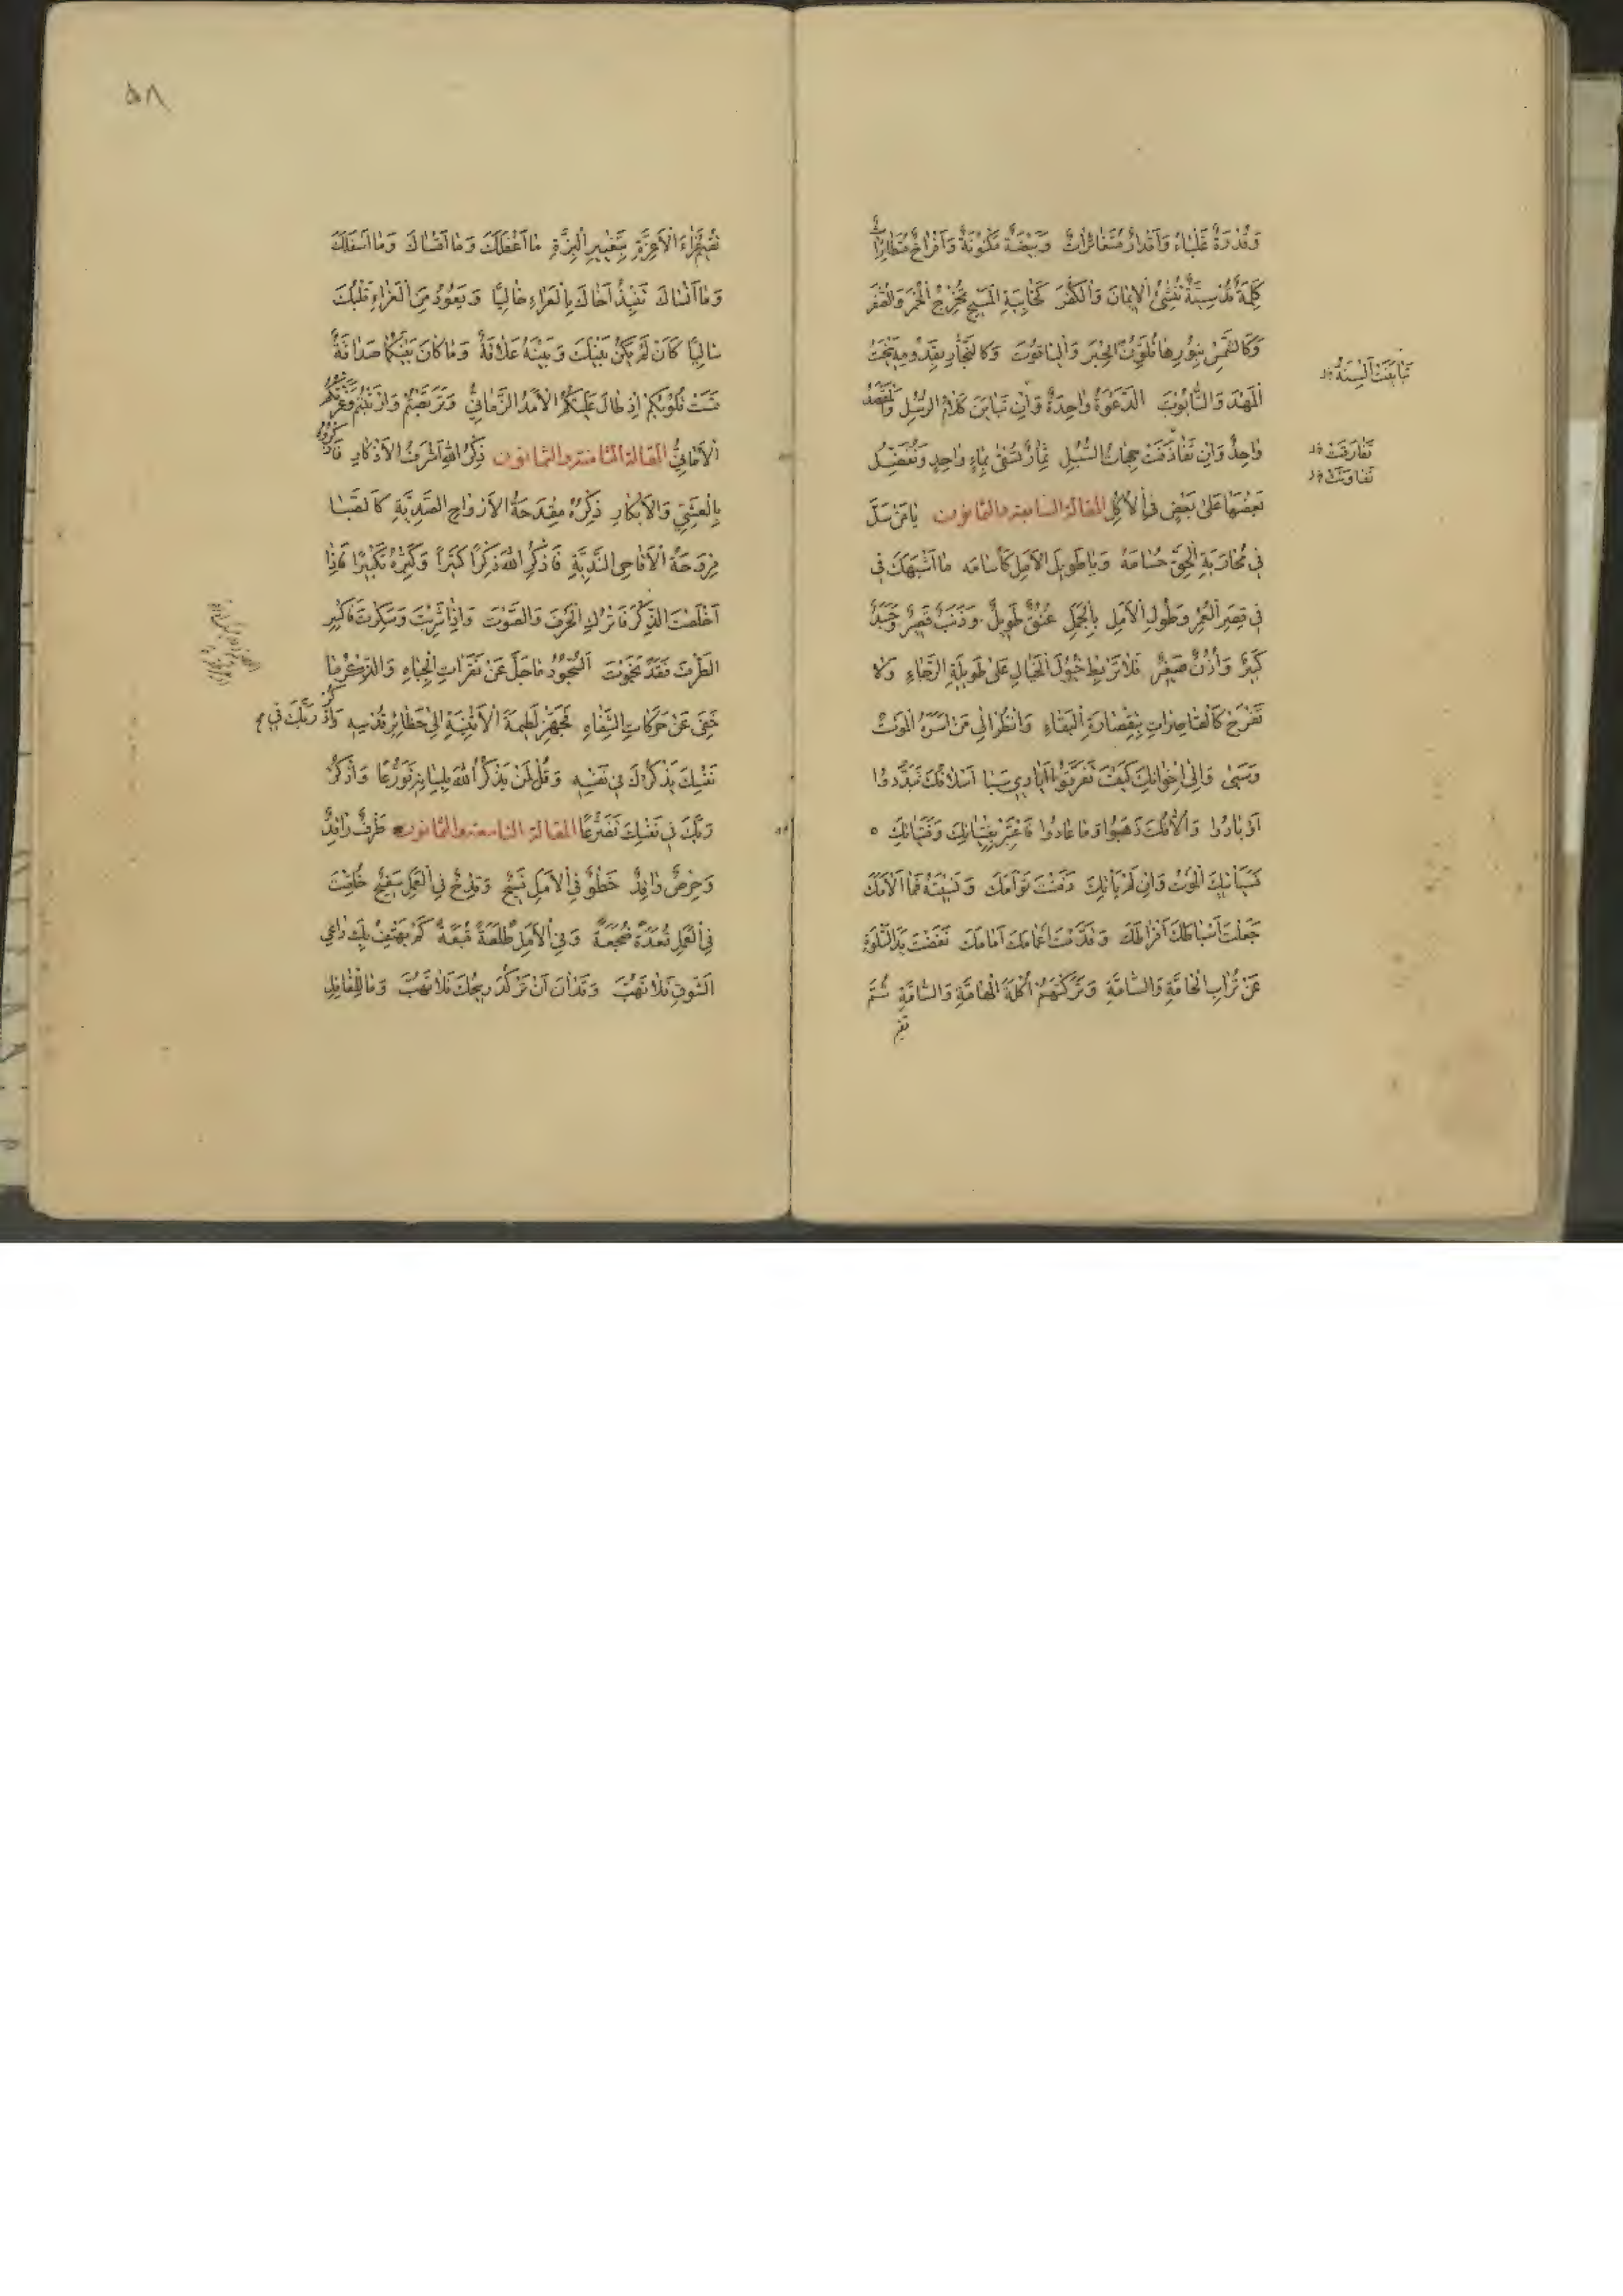 وَقُدْرَةٌ غَلْبَاءُ وَأَقْدَارٌ مُتَغَايِرَاتٌ وَبَيْضَةٌ مَكْنُونَةٌ وَأَفْرَاخٌ
كَلِمَةٌ قُدْسِيَّةٌ تُنْشِئُ الْإِيمَانَ وَالْكُفْرَ كَخَابِيَةِ الْمَسِيحِ تُخْرِجُ الْحُمْرَ وَالصُّفْرَ
وَكَالشَّمْسِ بِنُورِهَا تُلَوِّنُ الْحِبْرَ وَالْيَاقُوتَ وَكَالنَّجَّارِ بِقَدُومِهِ يَنْحِتُ
الْمَهْدَ وَالتَّابُوتَ الدَّعْوَةُ وَاحِدَةٌ وَإِنْ تَبَايَنَ كَلَامُ الرُّسُلِ وَالْمَقْصَدُ
وَاحِدٌ وَإِنْ تَقَاذَفَتْ جِهَاتُ السُّبُلِ ثِمَارٌ تُسْقَى بِمَاءٍ وَاحِدٍ وَنُفَضِّلُ
بَعْضَهَا عَلَى بَعْضٍ فِي الْأُكُلِ المقالة السابعة والثمانون يَا مَنْ سَلَّ
فِي مُحَارَبَةِ الْحَقِّ حُسَامَهْ وَيَا طَوِيلَ الْأَمَلِ كَأُسَامَه مَا أَشْبَهَكَ فِي
فِي قِصَرِ الْعُمْرِ وَطُولِ الْأَمَلِ بِالْجَمَلِ عُنُقٌ طَوِيلٌ وَذَنَبٌ قَصِيرٌ وَجَسَدٌ
كَبِيرٌ وَأُذُنٌ صَغِيرٌ فَلَا تَرْبِطْ خُيُولَ الْخَيَالِ عَلَى طَوِيلَةِ الرَّجَاءِ وَلَا
تَفْرَحْ كَالْقَاصِرَاتِ بِقُصَارَةِ الْبَقَاءِ وَانْظُرْ إِلَى مَنْ أَسَرَهُ الْمَوْتُ
وَسَبَى وَإِلَى إِخْوَانِكَ كَيْفَ تَفَرَّقُوا أَيَادِيَ سَبَا أَسْلَافُكَ تَبَدَّدُوا
أَوْ بَادُوا وَأُلَّافُكَ ذَهَبُوا وَمَا عَادُوا فَاعْتَبِرْ بِفِتْيَانِكَ وَفَتَيَاتِكَ
سَيَأْتِيكَ الْمَوْتُ وَإِنْ لَمْ يَأْتِكَ دَفَنْتَ تَوْأَمَكَ وَنَسِيتَهُ فَمَا أَلْأَمَكَ
جَعَلْتَ أَسْبَاطَكَ أَفْرَاطَكَ وَقَدَّمْتَ أَعْمَامَكَ أَمَامَكَ نَفَضْتَ يَدَ السَّلْوَةِ
عَنْ تُرَابِ الْحَامَّةِ وَالسَّامَّةِ وَتَرَكْتَهُمْ أُكْلَةَ الْهَامَّةِ وَالسَّامَّةِ ثُمَّ
تَبَايَنَتْ أَلْسِنَةُ
تَفَارَقَتْ
تَفَاوَتَتْ
٥٨
الْأَعِزَّةِ بِتَغْيِيرِ الْبِزَّةِ مَا أَغْفَلَكَ وَمَا أَقْسَاكَ وَمَا أَسْفَلَكَ
وَمَا أَنْسَاكَ تَنْبِذُ أَخَاكَ بِالْعَرَاءِ خَالِيًا وَيَعُودُ مِنَ الْعَزَاءِ قَلْبُكَ
سَالِيًا كَأَنْ لَمْ يَكُنْ بَيْنَكَ وَبَيْنَهُ عَلَاقَةٌ وَمَا كَانَ بَيْنَكُمَا صَدَاقَةٌ
قَسَتْ قُلُوبُكُمْ إِذْ طَالَ عَلَيْكُمُ الْأَمَدُ الزَّمَانِيُّ وَتَرَبَّصْتُمْ وَارْتَبْتُمْ وَغَرَّتْكُمُ
الْأَمَانِيُّ المقالة الثامنة والثمانون ذِكْرُ اللهِ أَشْرَفُ الْأَذْكَارِ فَاذْكُرُوهُ
بِالْعَشِيِّ وَالْإِبْكَارِ ذِكْرُهُ مِقْدَحَةُ الْأَرْوَاحِ الصَّدِيَّةِ كَالصَّبَا
مِرْوَحَةُ الْأَقَاحِي النَّدِيَّةِ فَاذْكُرِ اللهَ ذِكْرًا كَثِيرًا وَكَبِّرْهُ تَكْبِيرًا فَإِذَا
أَخْلَصْتَ الذِّكْرَ فَاتْرُكِ الْحَرْفَ وَالصَّوْتَ وَإِذَا شَرِبْتَ وَسَكِرْتَ فَاكْسِرِ
الظَّرْفَ فَقَدْ نَجَوْتَ السُّجُودُ مَا جَلَّ عَنْ نَقَرَاتِ الْجِبَاهِ وَالذِّكْرُ مَا
خَفِيَ عَنْ حَرَكَاتِ الشِّفَاهِ فَجَهِّزْ لَطِيمَةَ الْأَثْنِيَةِ إِلَى حَظَائِرِ قُدْسِهِ وَاذْكُرْ رَبَّكَ فِي
نَفْسِكَ يَذْكُرْكَ فِي نَفْسِهِ وَقُلْ لِمَنْ يَذْكُرُ اللهَ بِلِسَانِهِ تَوَرُّعًا وَاذْكُرْ
رَبَّكَ فِي نَفْسِكَ تَضَرُّعًا المقالة التاسعة والثمانون طَرْفٌ رَاقِدٌ
وَحِرْصٌ وَاقِدٌ خَطْوٌ فِي الْأَمَلِ فَسِيحٌ وَقِدْحٌ فِي الْعَمَلِ سَفِيحٌ خُلِقْتَ
فِي الْعَمَلِ قُعَدَةً ضُجَعَةً وَفِي الْأَمَلِ طُلَعَةً قُبَعَةً كَمْ يَهْتِفُ بِكَ دَاعِي
الشَّوْقِ فَلَا تَهُبُّ وَقَدْ آنَ أَنْ تَرْكُدَ رِيحُكَ فَلَا تَهُبُّ وَمَا لِلْغَافِلِ